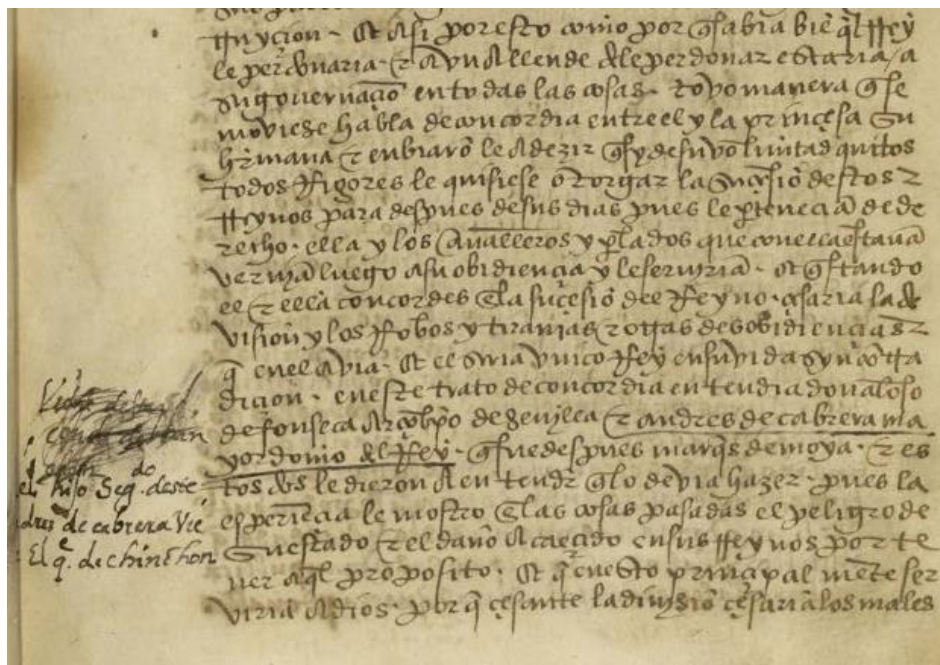 ꝑnycion. Et asi por esto como por q̄ sabia biē q̄l Rey
le perdonaria. ⁊ avn allende del perdonar estaria, a
su gouernaçiō en todas las cosas. tovo manera q̄ se
moviese habla de concordia entre el y la prinçesa su
hr̄mana ⁊ enbiarō le a dezir q̄ sy de su voluntad quitos
todos Rigores le quisiese otorgar la suçesiō destos
Reynos para despues de sus dias pues le p̄teneciā de de
recho. ella y los cavalleros y p̄lados que con ella estavā
verniā luego a su obidiençia y le seruiriā. Et q̄ stando
el ⁊ ella concordes en la suçesiō del Reyno. çesaria la di
vision y los Robos y tiranias ⁊ otras desobidiençias
q̄ en el avia. Et el seria vnico Rey en su vida syn cōtra
dicion. en este trato de concordia entendia don aloso
de fonseca arçobp̄o de seuilla ⁊ andres de cabrera ma
yordomo del Rey. q̄ fue despues marq̄s de moya. ⁊ es
tos dos le dieron a entender q̄ lo devia hazer. pues la
esperiēcia le mostro en las cosas pasadas el peligro de
su estado ⁊ el daño acreçido en sus Reynos por te
ner aq̄l proposito. Et q̄ en esto principal mente ser
viria a dios. por q̄ çesante la diuisiō çesariā los males
el hijo seg.do deste
andres de cabrera vie
El q.e de chinchon